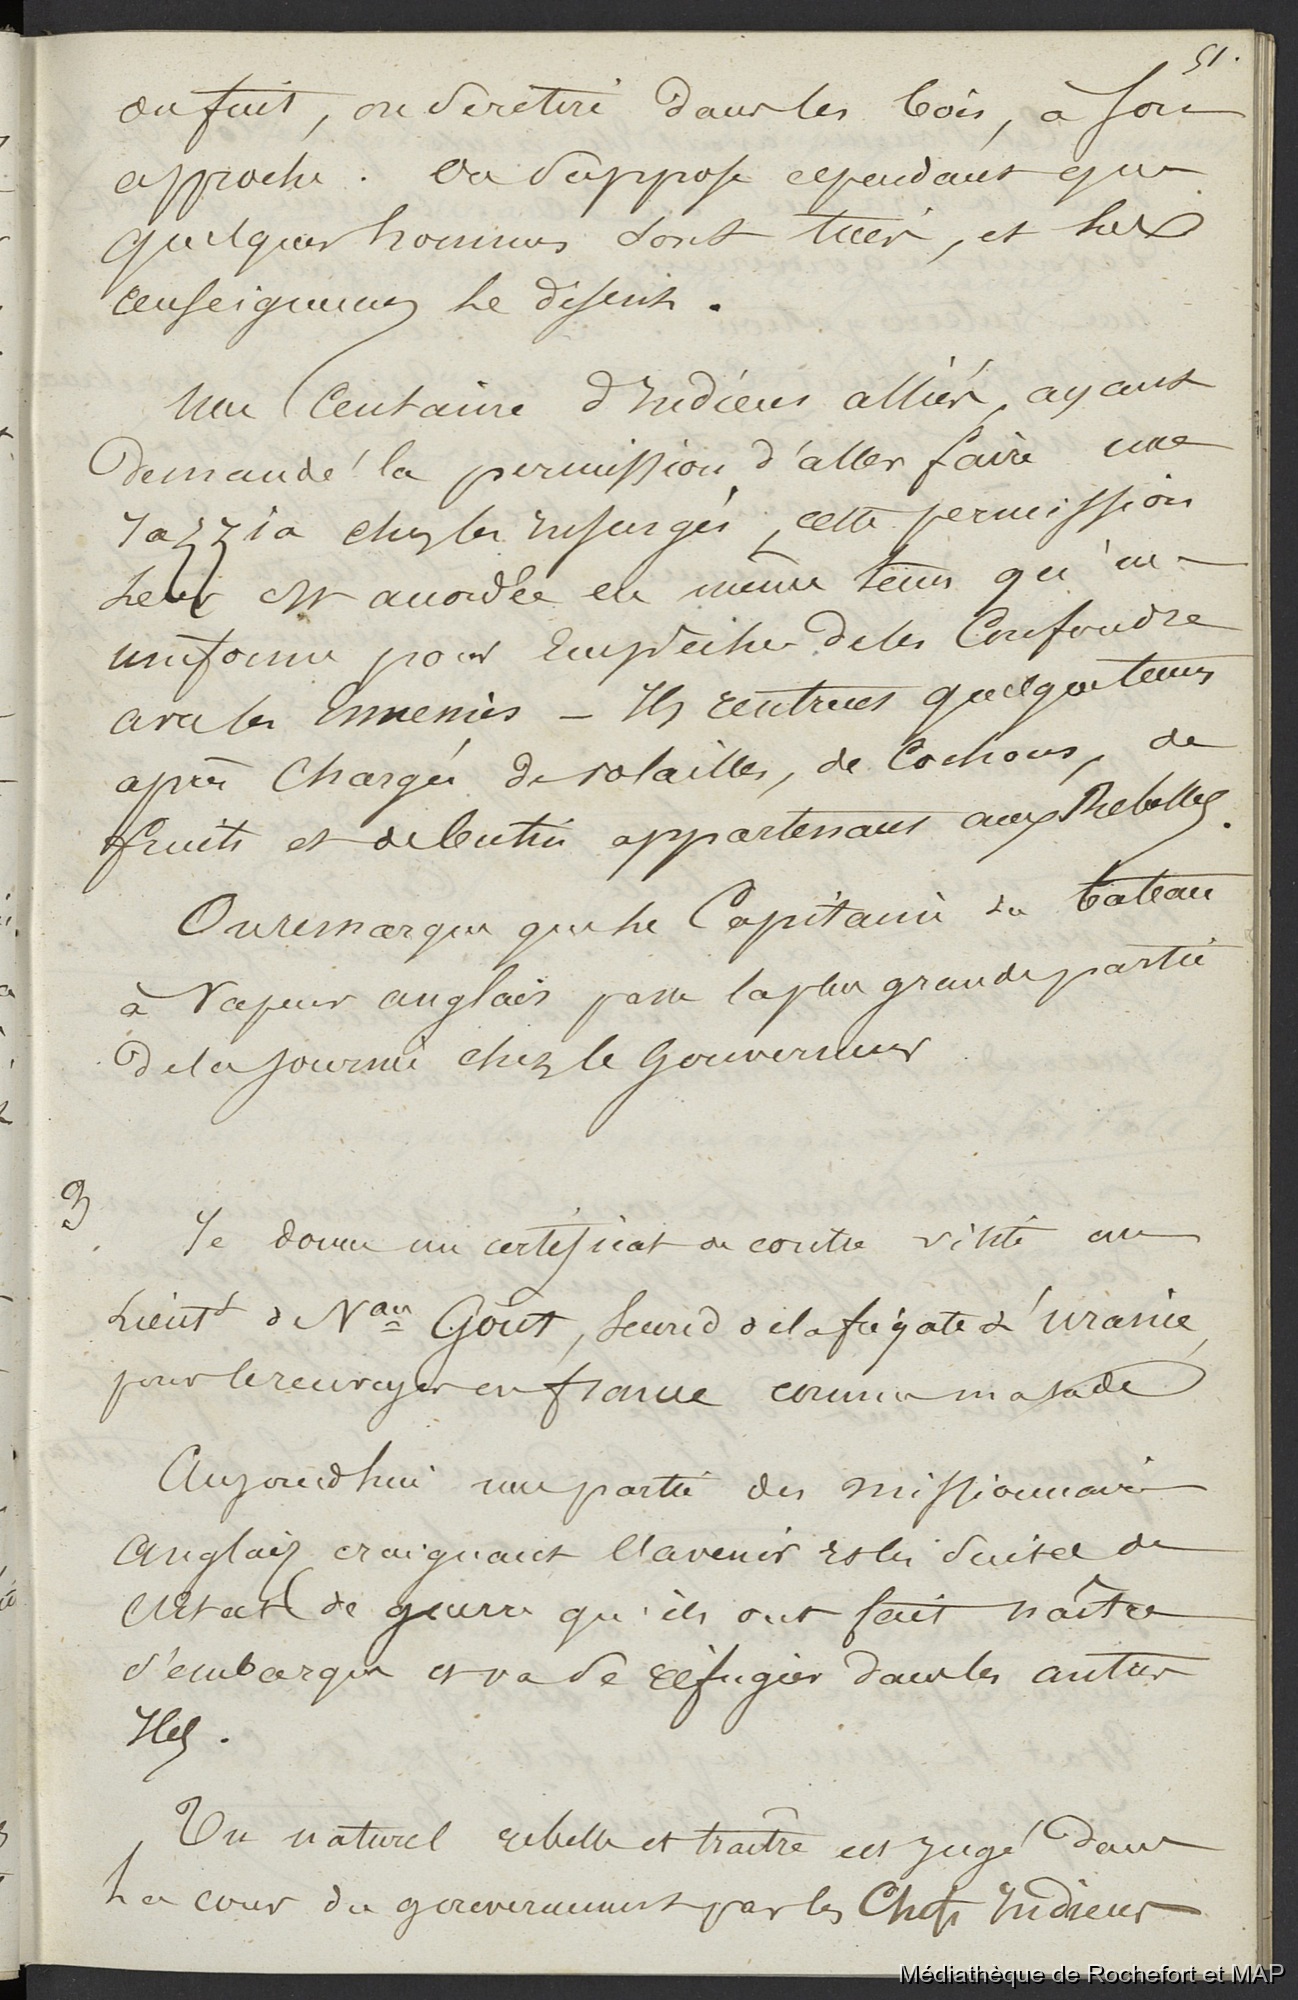 51.
on fuit, on se retire dans les bois, à son
approche. On suppose cependant que
quelques hommes sont tués, et les
renseignemens le disent.
Une Centaine d'Indiens alliés, ayant
demandé la permission d'aller faire une
razzia chez les Insurgés, cette permission
leur est accordée en même tems qu'un
uniforme pour Empêcher de les Confondre
avec les Ennemis — Ils rentrent quelque tems
après Chargés de volailles, de Cochons, de
fruits et de butin appartenant aux Rebelles.
On remarque que le Capitaine du bateau
à Vapeur anglais passe la plus grande partie
de la journée chez le Gouverneur
3. Je donne un certificat de contre visite au
Lieutt de Vau Goût, second de la frégate L'Uranie,
pour le renvoyer en france comme malade
Aujourdhui une partie des missionnaires
Anglais craignant l'avenir et les suites de
l'Etat de guerre qu'ils ont fait naître
s'embarque et va se réfugier dans les autres
Iles.
Un naturel rebelle et traître est jugé dans
La cour du gouvernement par les Chefs Indiens
Médiathèque de Rochefort et MAP